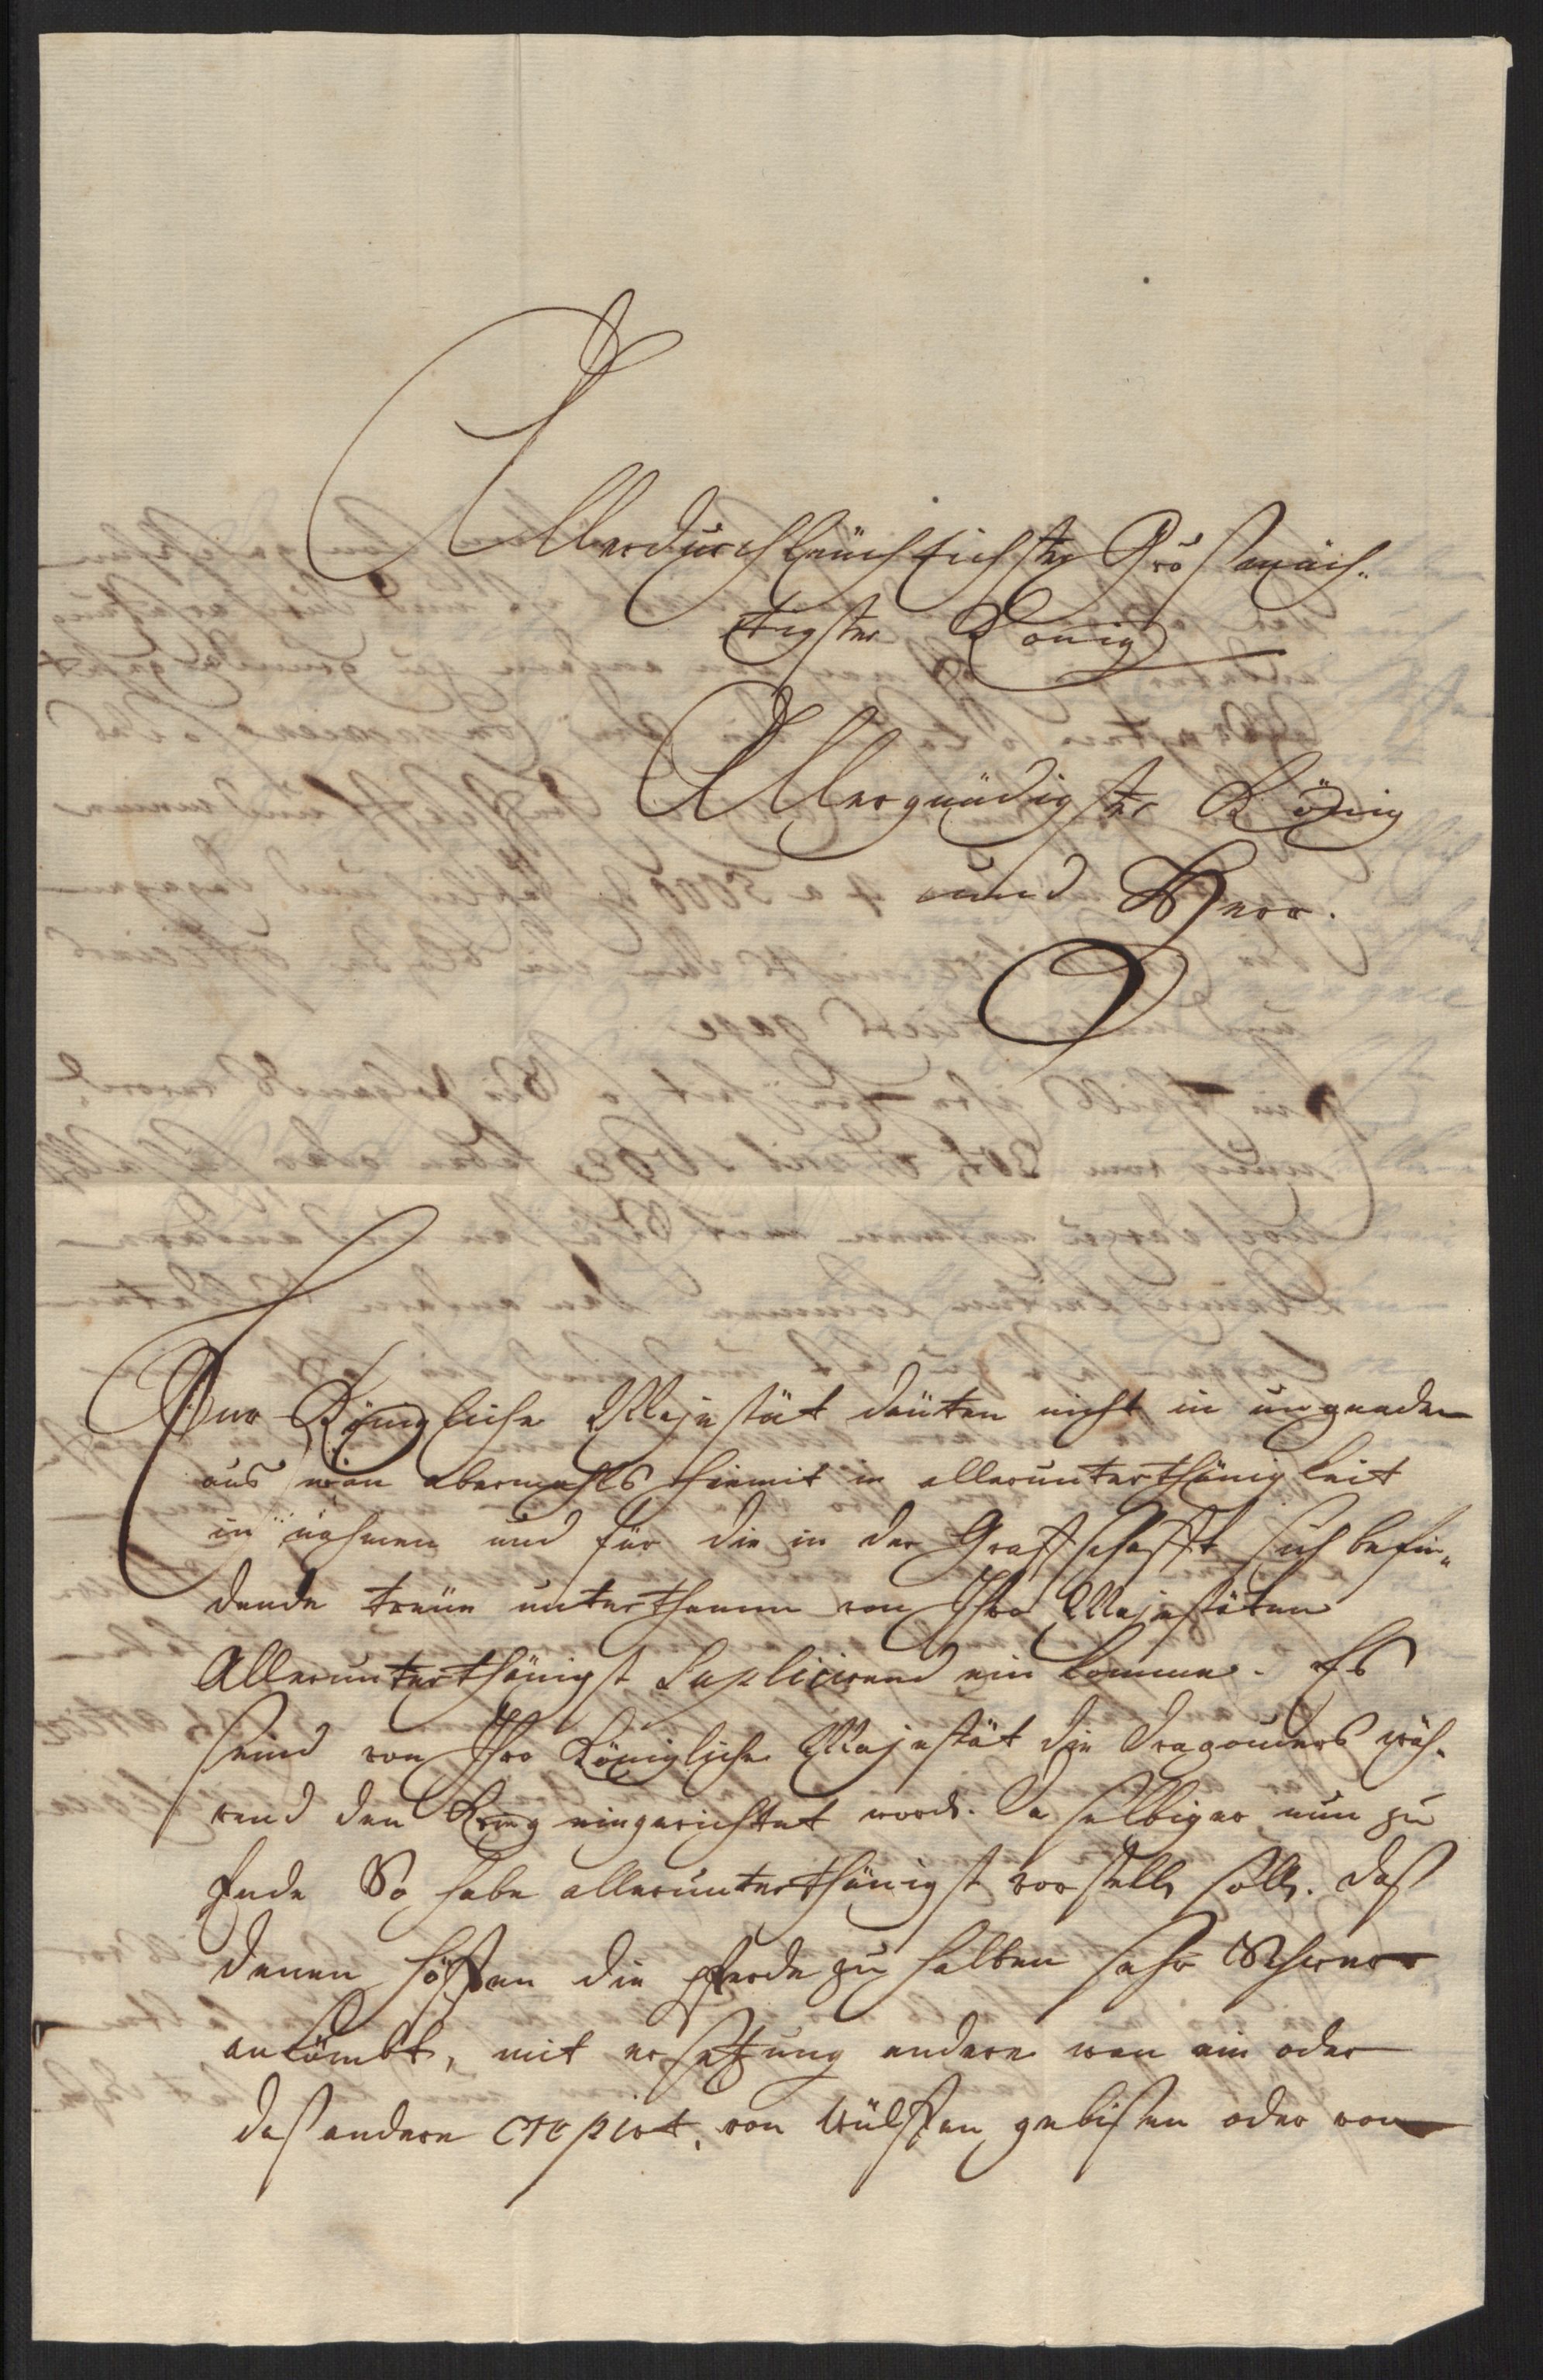 Allerdurchleüchtichster Grosmäch„
tigster König
Allergnädigster König
und Herr.
Eur Königliche Majestät deüten nicht in ungnaden
aus wan abermahls hiemit in allerunterthänigkeit
in nahmen und für die in der Graffschafft sich befin„
dende treüe unterthanen von Ihro Majestäten
Allerunterthänigst Suplicirend ein komme. Es
seind von Ihro Königliche Majestät die Dragouners wäh„
rend den Krieg eingerichtet word. Da selbiger nun zu
Ende So habe allerunterthänigst vorstelln solln. daß
denen höffen die Pferde zu halten sehr Schwer
ankömbt, mit ersetzung andere wan ein oder
daß andere crepirt, von Wülffen gebissen oder von